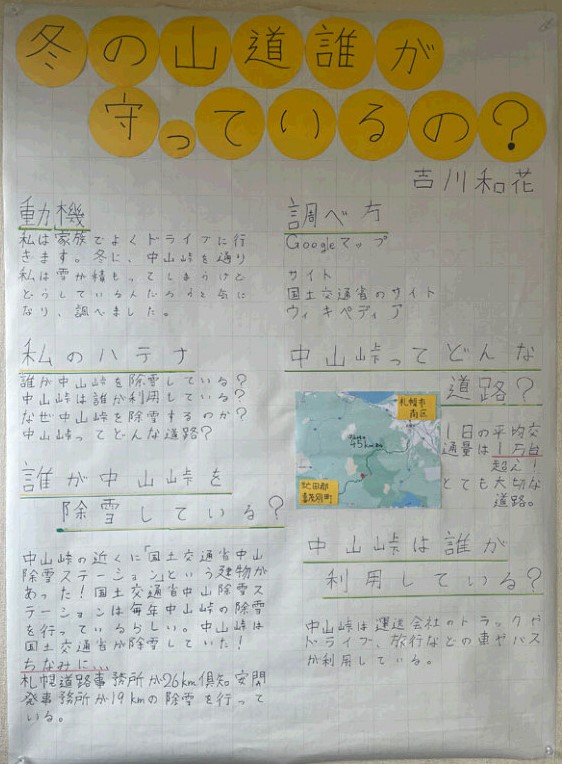 冬の山道誰が
守っているの？
吉川和花
動機
私は家族でよくドライブに行
きます。冬に、中山峠を通り
私は雪が積もってしまうけど
どうしているんだろうと気に
なり、調べました。
私のハテナ
誰が中山峠を除雪している？
中山峠は誰が利用している？
なぜ中山峠を除雪するのか？
中山峠ってどんな道路？
誰が中山峠を
除雪している？
中山峠の近くに「国土交通省中山
除雪ステーション」という建物が
あった！国土交通省中山除雪ス
テーションは毎年中山峠の除雪
を行っているらしい。中山峠は
国土交通省が除雪していた！
ちなみに…
札幌道路事務所が26km倶知安開
発事務所が19kmの除雪を行って
いる。
調べ方
Googleマップ
サイト
国土交通省のサイト
ウィキペディア
中山峠ってどんな
道路？
札幌市
南区
45km
虻田郡
喜茂別町
1日の平均交
通量は1万台
超え！
とても大切な
道路。
中山峠は誰が
利用している？
中山峠は運送会社のトラックや
ドライブ、旅行などの車やバス
が利用している。